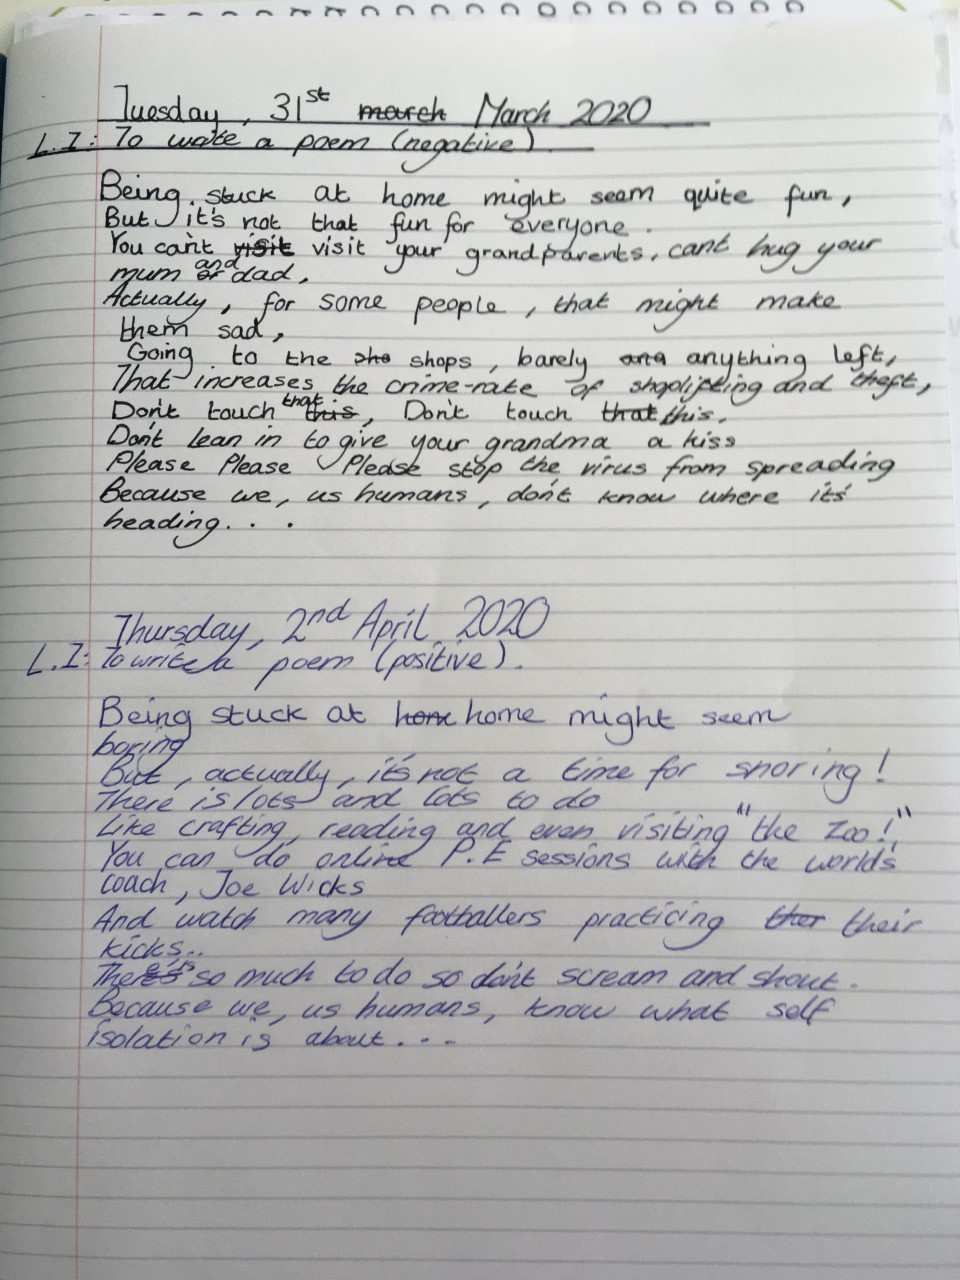 Tuesday, 31st march March 2020
L.I: To write a poem (negative)
Being stuck at home might seem quite fun,
But it's not that fun for everyone.
You can't visit visit your grandparents, cant hug your
mum or and dad,
Actually, for some people, that might make
them sad,
Going to the sho shops, barely ana anything left,
That increases the crime-rate of shoplifting and theft,
Don't touch this that, Don't touch that this.
Don't lean in to give your grandma a kiss
Please Please Please stop the virus from spreading
Because we, us humans, don't know where its
heading...
Thursday, 2nd April 2020
L.I: To write a poem (positive).
Being stuck at hom home might seem
boring
But, actually, it's not a time for snoring!
There is lots and lots to do
Like crafting, reading and even visiting "the zoo!"
You can do online P.E sessions with the worlds
coach, Joe Wicks
And watch many footballers practicing ther their
kicks..
There is so much to do so don't scream and shout.
Because we, us humans, know what self
isolation is about...